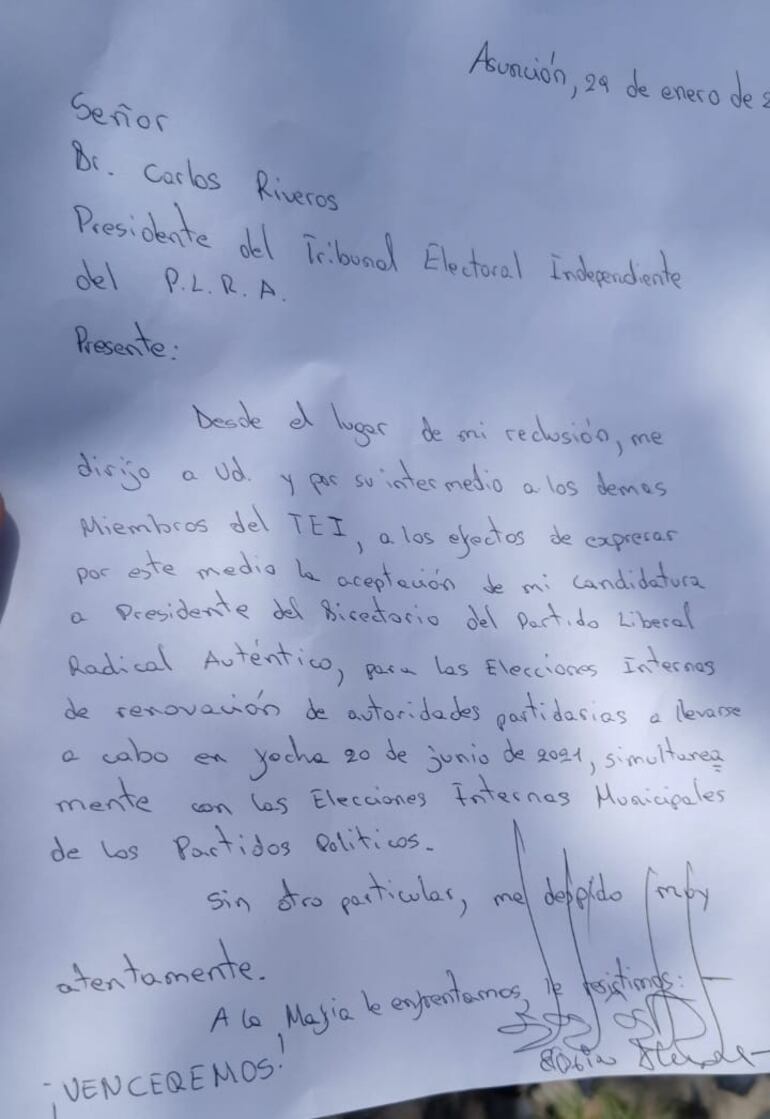 Asunción, 29 de enero de 2
Señor
Dr. Carlos Riveros
Presidente del Tribunal Electoral Independiente
del P.L.R.A.
Presente:
Desde el lugar de mi reclusión, me
dirijo a Ud. y por su intermedio a los demas
Miembros del TEI, a los efectos de expresar
por este medio la aceptación de mi candidatura
a Presidente del Directorio del Partido Liberal
Radical Auténtico, para las Elecciones Internas
de renovación de autoridades partidarias a llevarse
a cabo en fecha 20 de junio de 2021, simultanea
mente con las Elecciones Internas Municipales
de los Partidos Politicos.
Sin otro particular, me despido muy
atentamente.
A la Mafia le enfrentamos, le resistimos:
¡VENCEREMOS!